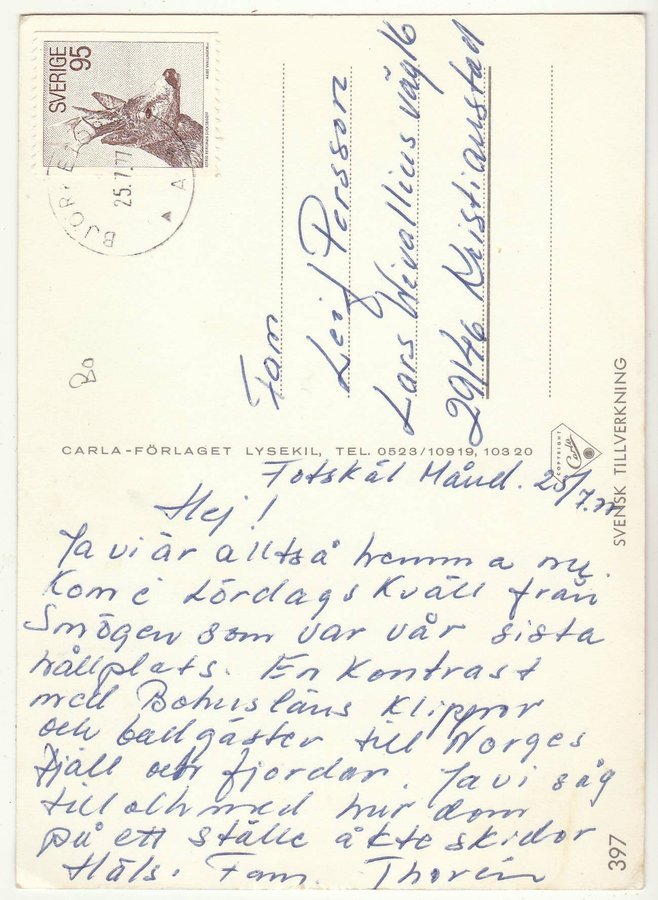 SVERIGE 95
BJÖRKE
25.7.77
A
Fam
Leif Persson
Lars Wivallius väg 16
29146 Kristianstad
Bo
CARLA-FÖRLAGET LYSEKIL, TEL. 0523/10919, 10320
COPYRIGHT
Carla
SVENSK TILLVERKNING
397
Totskäl Månd. 25/7.77
Hej!
Ja vi är alltså hemma nu.
Kom i Lördags Kväll från
Smögen som var vår sista
hållplats. En Kontrast
med Bohusläns Klippor
och badgäster till Norges
Fjäll och fjordar. Ja vi såg
till och med hur dom
på ett ställe åkte skidor
Häls. Fam. Thorén